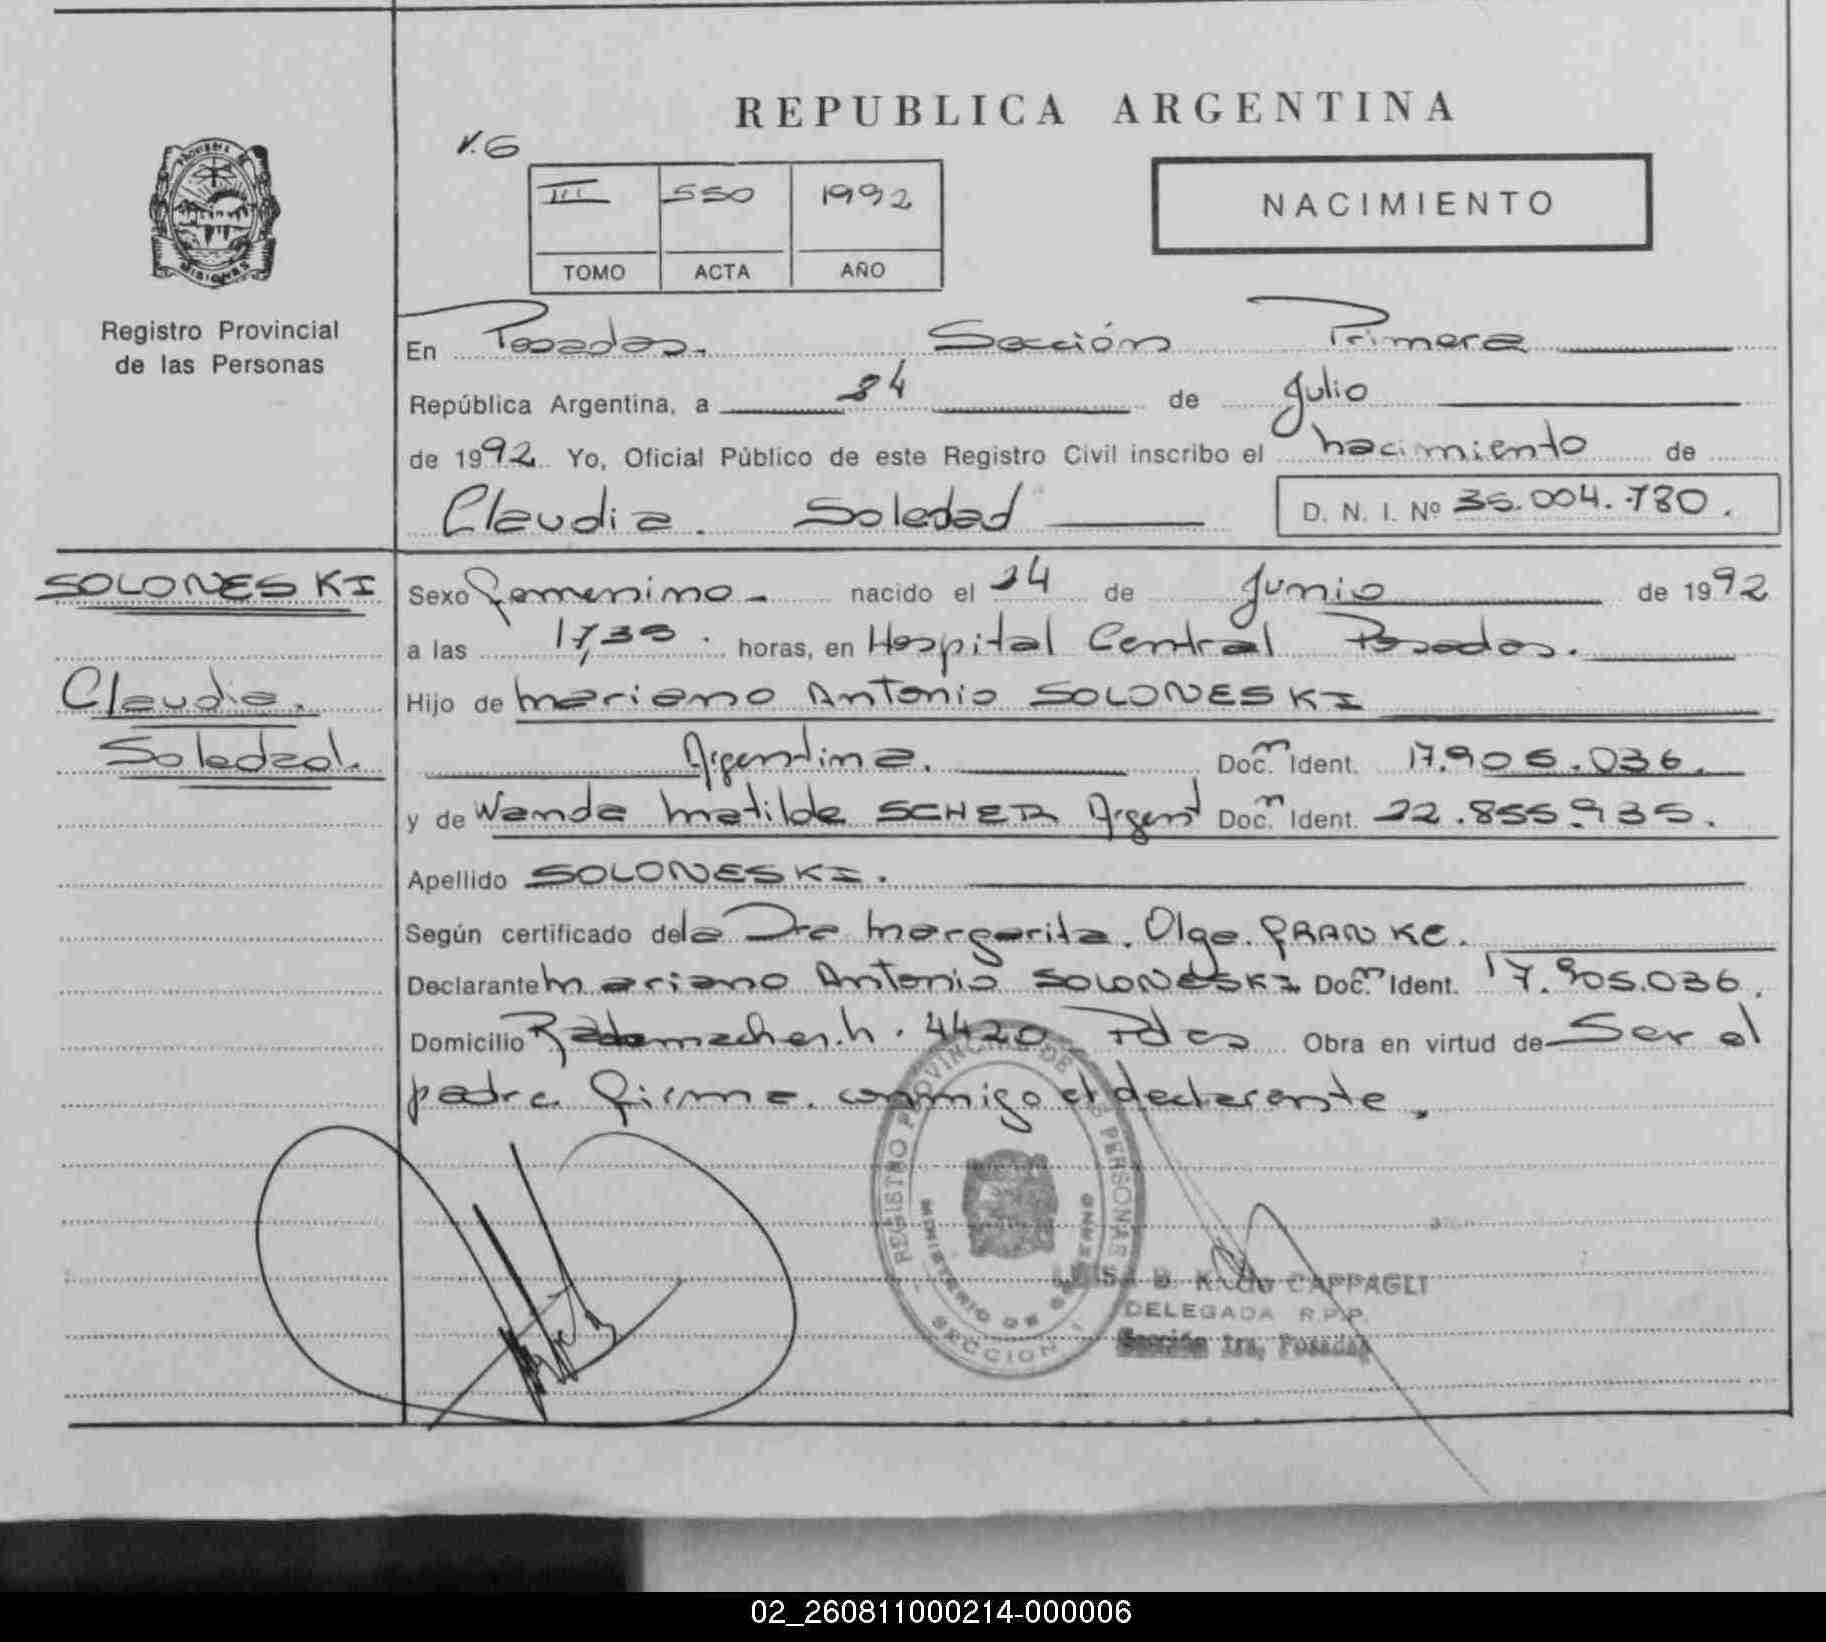 REPUBLICA ARGENTINA
V.G
III 550 1992
TOMO ACTA AÑO
NACIMIENTO
PROVINCIA DE
MISIONES
Registro Provincial
de las Personas
En Posadas. Sección Primera
República Argentina, a 24 de Julio
de 1992. Yo, Oficial Público de este Registro Civil inscribo el nacimiento de
Claudia. Soledad D. N. I. Nº 35.004.780.
SOLONESKI
Claudia.
Soledad.
Sexo Femenino - nacido el 24 de Junio de 1992
a las 17,35. horas, en Hospital Central Posadas.
Hijo de Mariano Antonio SOLONESKI
Argentina. Doc. Ident. 17.905.036.
y de Wanda Matilde SCHER Argent Doc. Ident. 22.855.935.
Apellido SOLONESKI.
Según certificado de la Dra Margarita. Olga. FRANKE.
Declarante Mariano Antonio SOLONESKI Doc. Ident. 17.905.036.
Domicilio Rademacher. h. 4420 Pdas Obra en virtud de Ser el
padre. Firma. conmigo el declarante.
REGISTRO PROVINCIAL DE LAS PERSONAS
MINISTERIO DE GOBIERNO
SECCION 1
B. K. de CAPPAGLI
DELEGADA R.P.P.
Sección 1ra. Posadas
02_260811000214-000006